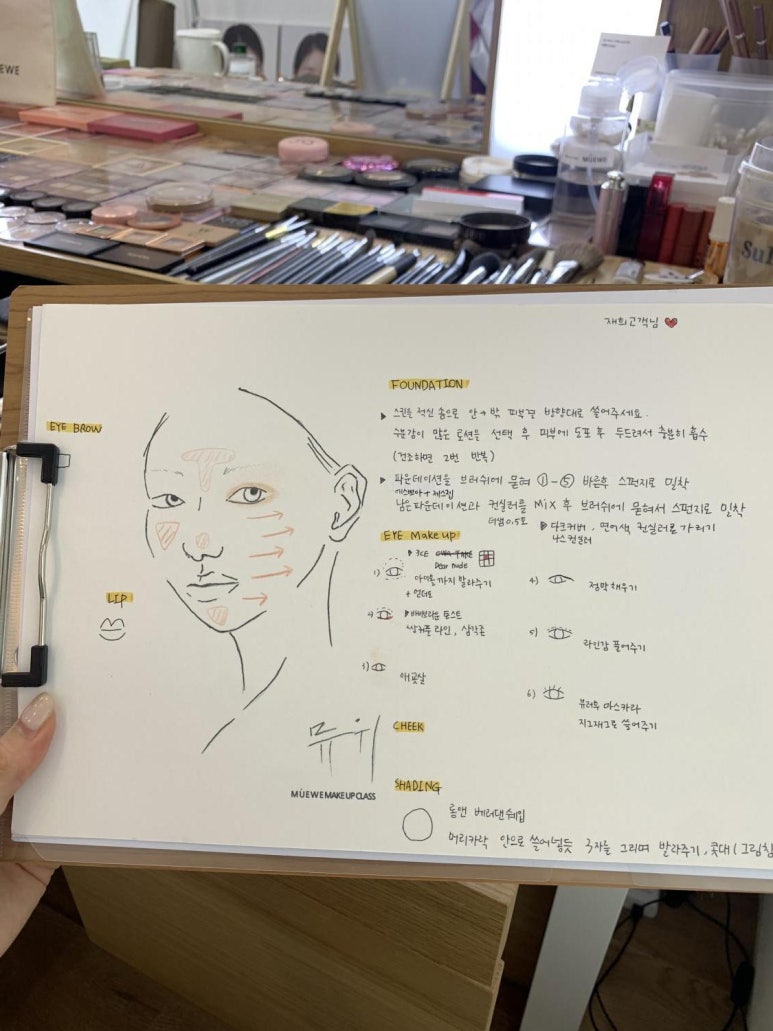 EWE
MÜEWE
Sul
재희고객님 ❤
EYE BROW
LIP
FOUNDATION
▶ 스킨을 적신 솜으로 안→밖 피부결 방향대로 쓸어주세요.
수분감이 많은 로션을 선택 후 피부에 도포 후 두드려서 충분히 흡수
(건조하면 2번 반복)
▶ 파운데이션을 브러쉬에 묻혀 ①-⑤ 바른후 스펀지로 밀착
에스쁘아 +
남은 파운데이션과 컨실러를 Mix 후 브러쉬에 묻혀서 스펀지로 밀착
더샘 0.5호
▶ 다크커버. 면여색 컨실러로 가리기
나스 컨실러
EYE Make up
1)
▶ 3CE
Dear nude
아이홀까지 발라주기
+ 언더도
2)
▶ 토스트
쌍커풀 라인, 삼각존
3)
애굣살
4)
점막채우기
5)
라인감 풀어주기
6)
마스카라
지그재그로 쓸어주기
CHEEK
SHADING
롬앤 베러댄쉐입
머리카락 안으로 쓸어넣듯 3자를 그리며 발라주기, 콧대(그림참
뮤위
MÜEWE MAKEUP CLASS